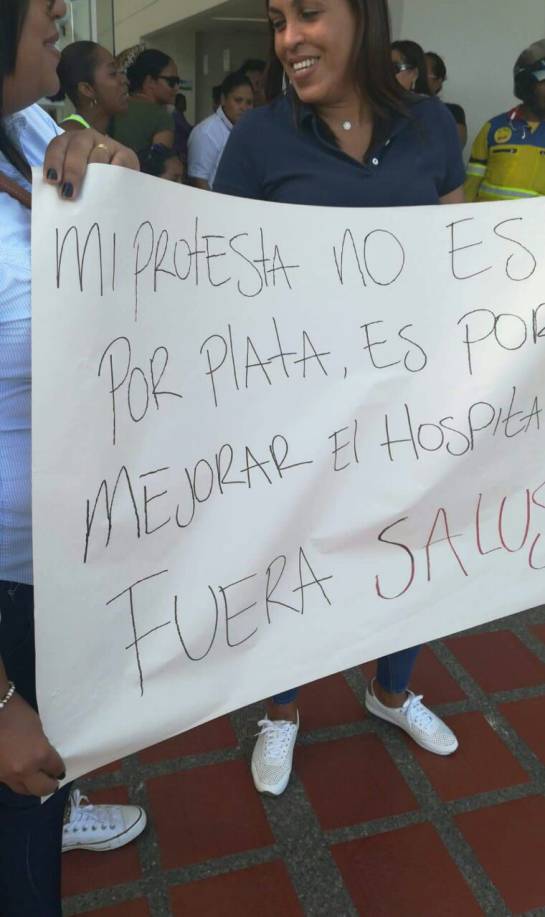 MI PROtESTA NO ES
POR PlAtA, ES POR
MEJORAR El HOSPItA
FUERA SALUS